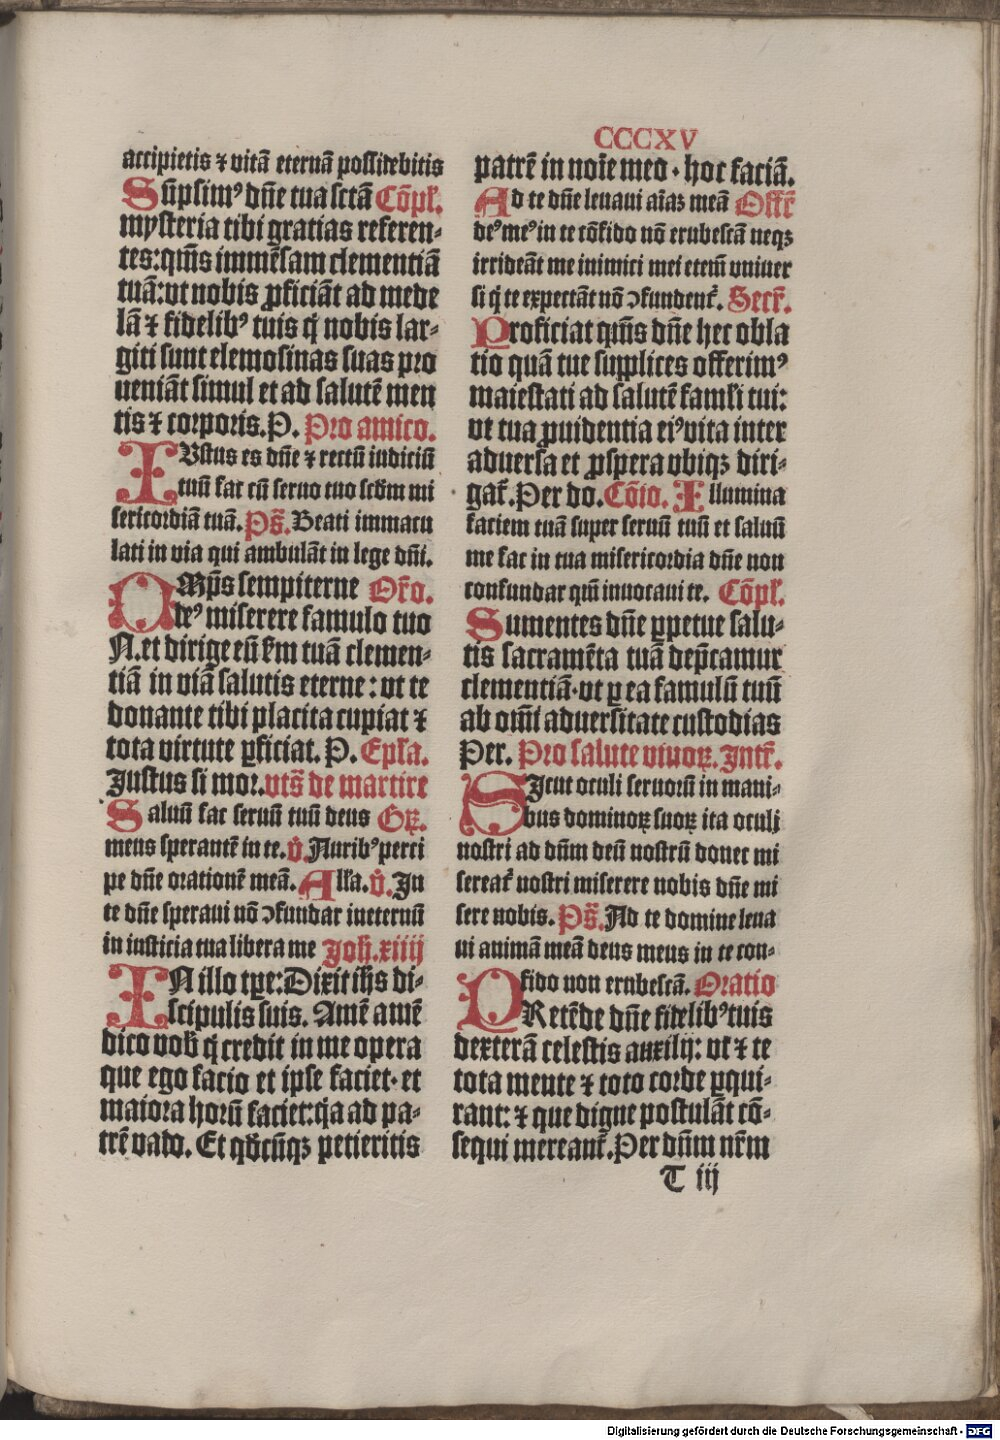 CCCXV
accipietis ⁊ vitā eternā possidebitis
Sūpsimꝰ dn̄e tua sctā Cōpl'.
mysteria tibi gratias referen-
tes: qm̄s immēsam clementiā
tuā: vt nobis ꝓficiāt ad mede
lā ⁊ fidelibꝰ tuis q̇ nobis lar-
giti sunt elemosinas suas pro
veniāt simul et ad salutē men
tis ⁊ corporis. P. Pro amico.
IVstus es dn̄e ⁊ rectū iudiciū
tuū fac cū seruo tuo scd̄m mi
sericordiā tuā. Ps̄. Beati immacu
lati in via qui ambulāt in lege dn̄i.
OMp̄s sempiterne Or̄o.
deꝰ miserere famulo tuo
N. et dirige eū s̄m tuā clemen-
tiā in viā salutis eterne: vt te
donante tibi placita cupiat ⁊
tota virtute ꝑficiat. P. Epl'a.
Justus si mor. vts̄ de martire
Saluū fac seruū tuū deus Gꝝ.
meus sperantē in te. v̇. Auribꝰ perci
pe dn̄e orationē meā. All'a. v̇. In
te dn̄e speraui nō ↄfundar ineternū
in iusticia tua libera me Joh. xiiij
IN illo tp̄e: Dixit ih̄s di-
scipulis suis. Amē amē
dico vob̄ q̇ credit in me opera
que ego facio et ipse faciet. et
maiora horū faciet: q̇a ad pa-
trē vado. Et qd̄cūqꝫ petieritis
patrē in noīe meo. hoc faciā.
Ad te dn̄e leuaui aīaꝫ meā Offr̄
deꝰ meꝰ in te cōfido nō erubescā neqꝫ
irrideāt me inimici mei etem̄ vniuer
si q̇ te expectāt nō ↄfundent᷑. Secr̄.
Proficiat qm̄s dn̄e hec obla
tio quā tue supplices offerimꝰ
maiestati ad salutē famli tui:
vt tua ꝓuidentia eiꝰ vita inter
aduersa et ꝓspera vbiqꝫ diri-
gat᷑. Per do. Cōio. Illumina
faciem tuā super seruū tuū et saluū
me fac in tua misericordia dn̄e non
confundar qm̄ inuocaui te. Cōpl'.
Sumentes dn̄e ꝑpetue salu-
tis sacramēta tuā dep̄camur
clementiā. vt ꝑ ea famulū tuū
ab om̄i aduersitate custodias
Per. Pro salute viuoꝝ. Intr̄.
SIcut oculi seruorū in mani-
bus dominoꝝ suoꝝ ita oculi
nostri ad dn̄m deū nostrū donec mi
sereat᷑ nostri miserere nobis dn̄e mi
sere nobis. Ps̄. Ad te domine leua
ui animā meā deus meus in te con-
fido non erubescā. Oratio
PRetēde dn̄e fidelibꝰ tuis
dexterā celestis auxilij: vt ⁊ te
tota mente ⁊ toto corde ꝑqui-
rant: ⁊ que digne postulāt cō-
sequi mereant᷑. Per dn̄m nr̄m
T iij
Digitalisierung gefördert durch die Deutsche Forschungsgemeinschaft - DFG